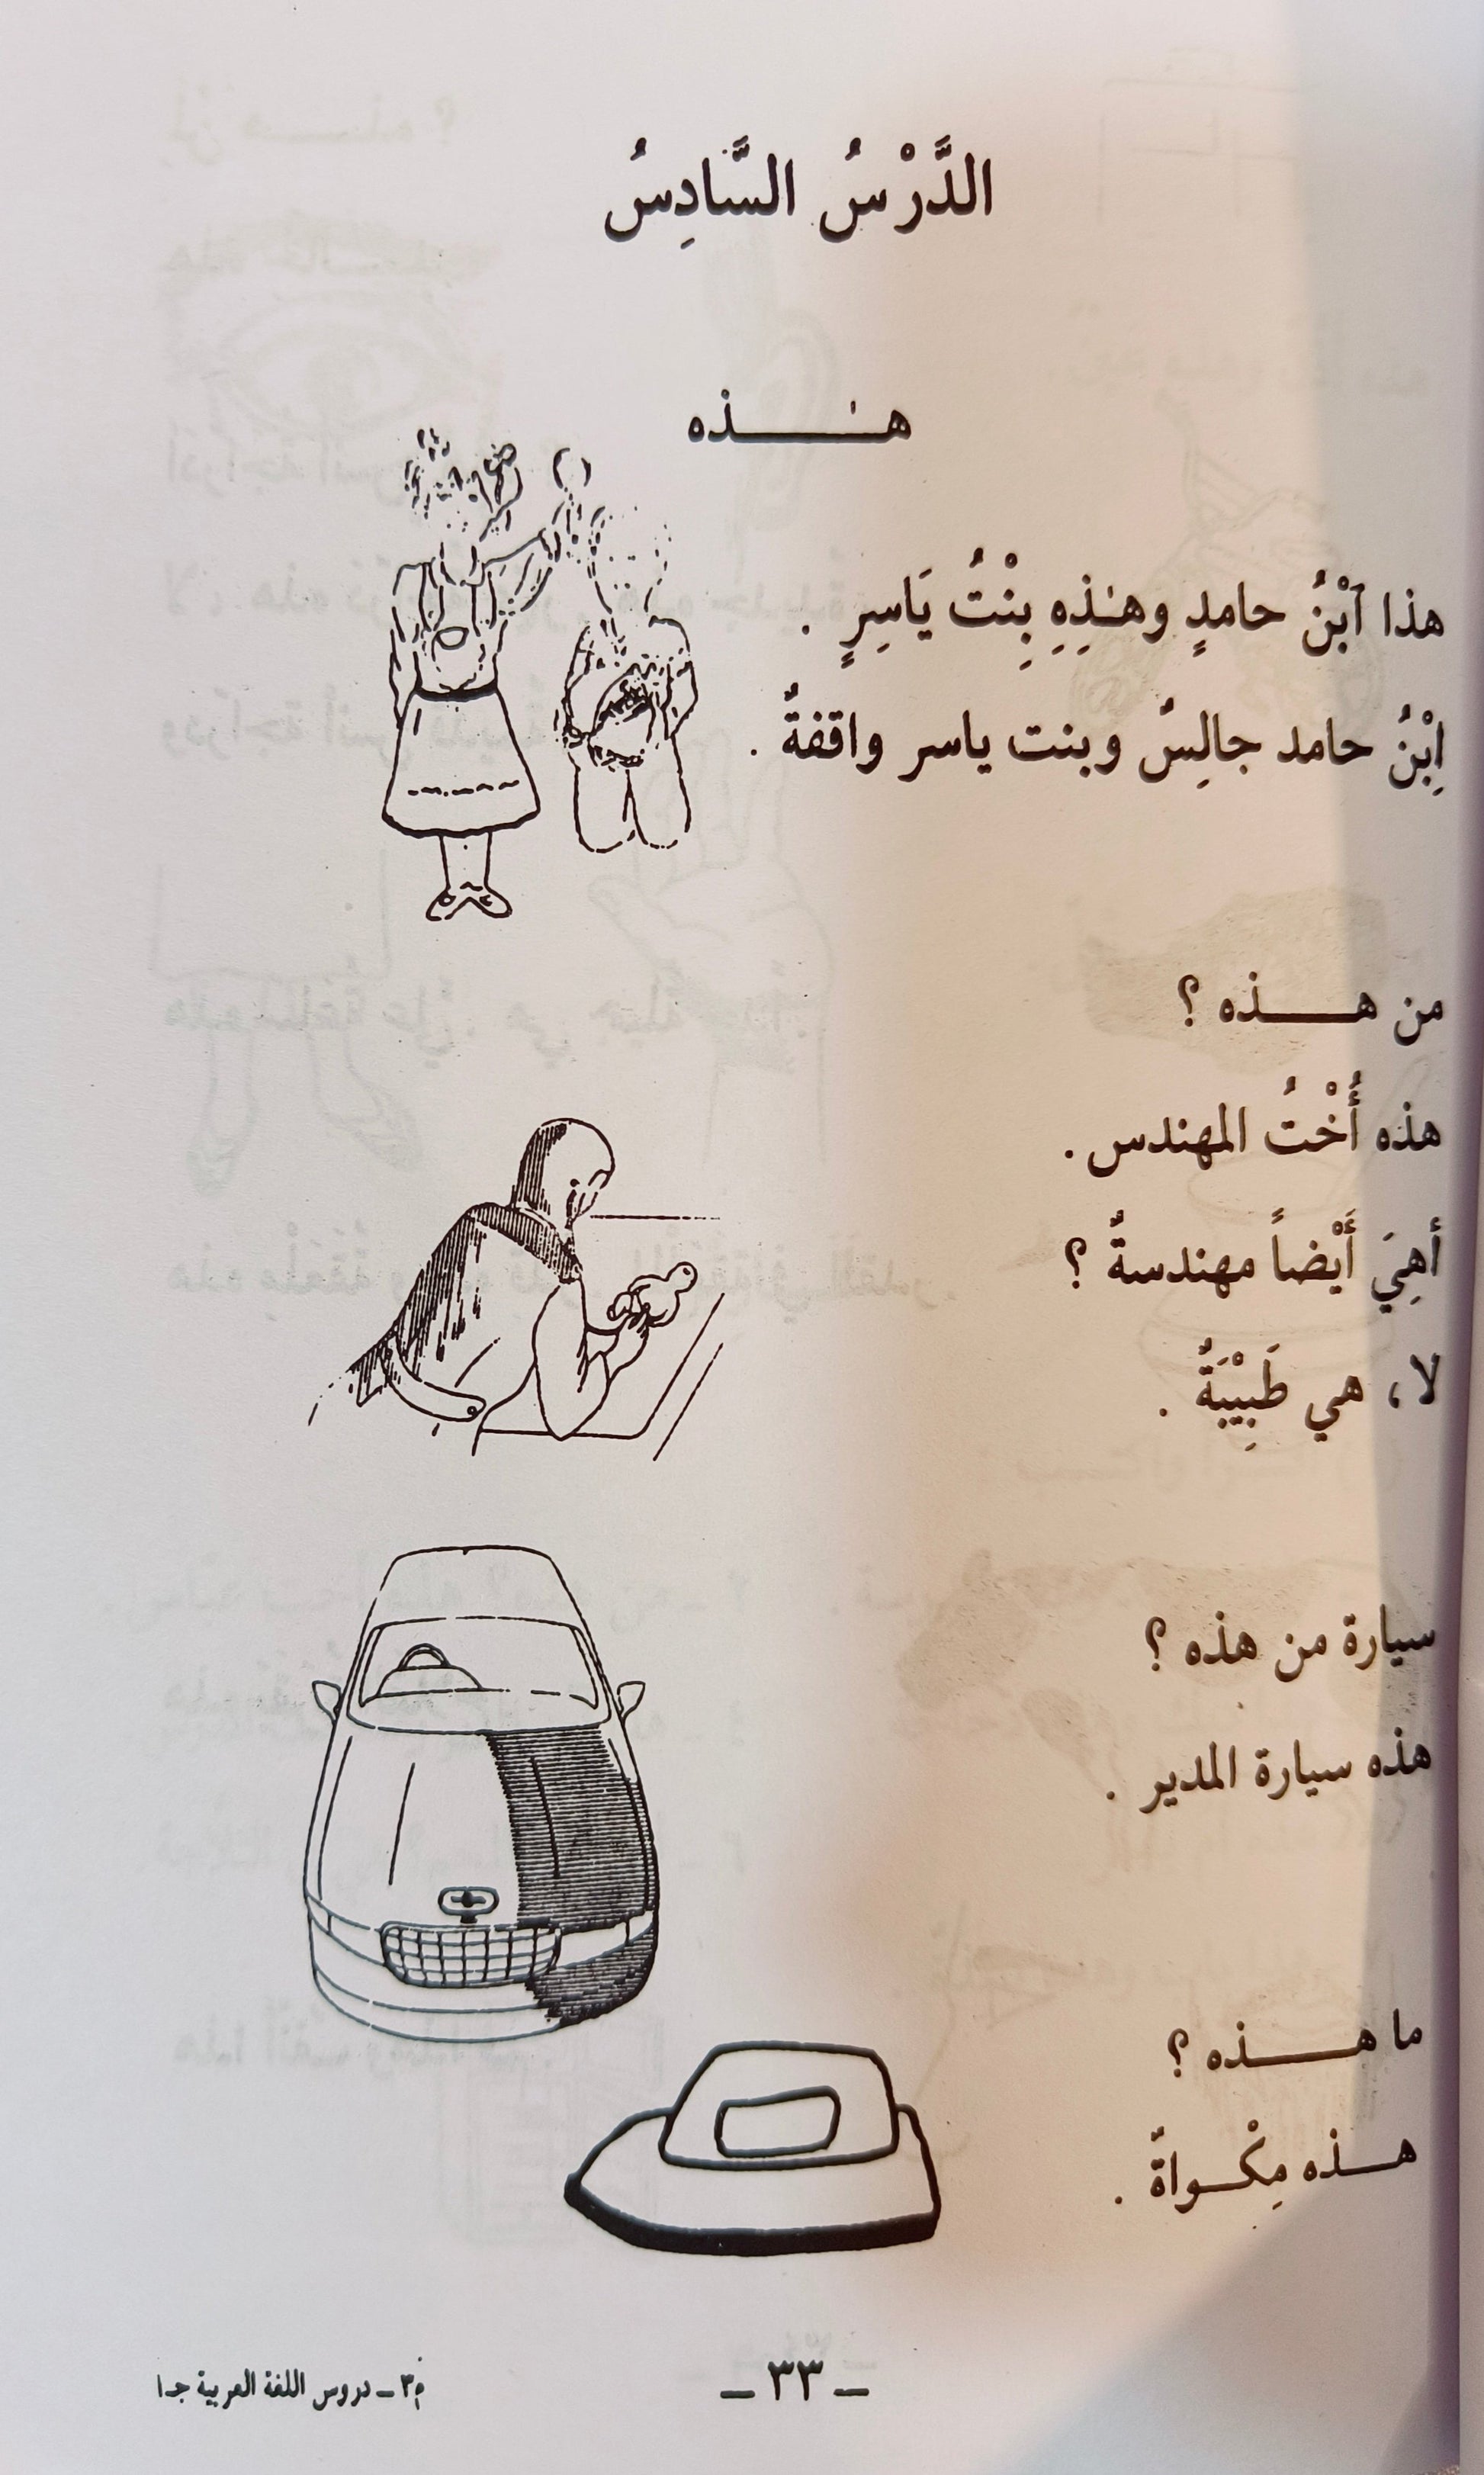 الدَّرْسُ السَّادِسُ
هـٰـذه
هذا ٱبْنُ حامدٍ وهـٰذِهِ بِنْتُ يَاسِرٍ .
اِبْنُ حامد جالِسٌ وبنت ياسر واقفةٌ .
من هـــذه ؟
هذه أُخْتُ المهندس .
أهِيَ أَيْضاً مهندسةٌ ؟
لا ، هي طَبِيْبَةٌ .
سيارة من هذه ؟
هذه سيارة المدير .
ما هـــذه ؟
هـــذه مِكْـواةٌ .
ــ ٣٣ ــ
م٣ ــ دروس اللغة العربية جـ١